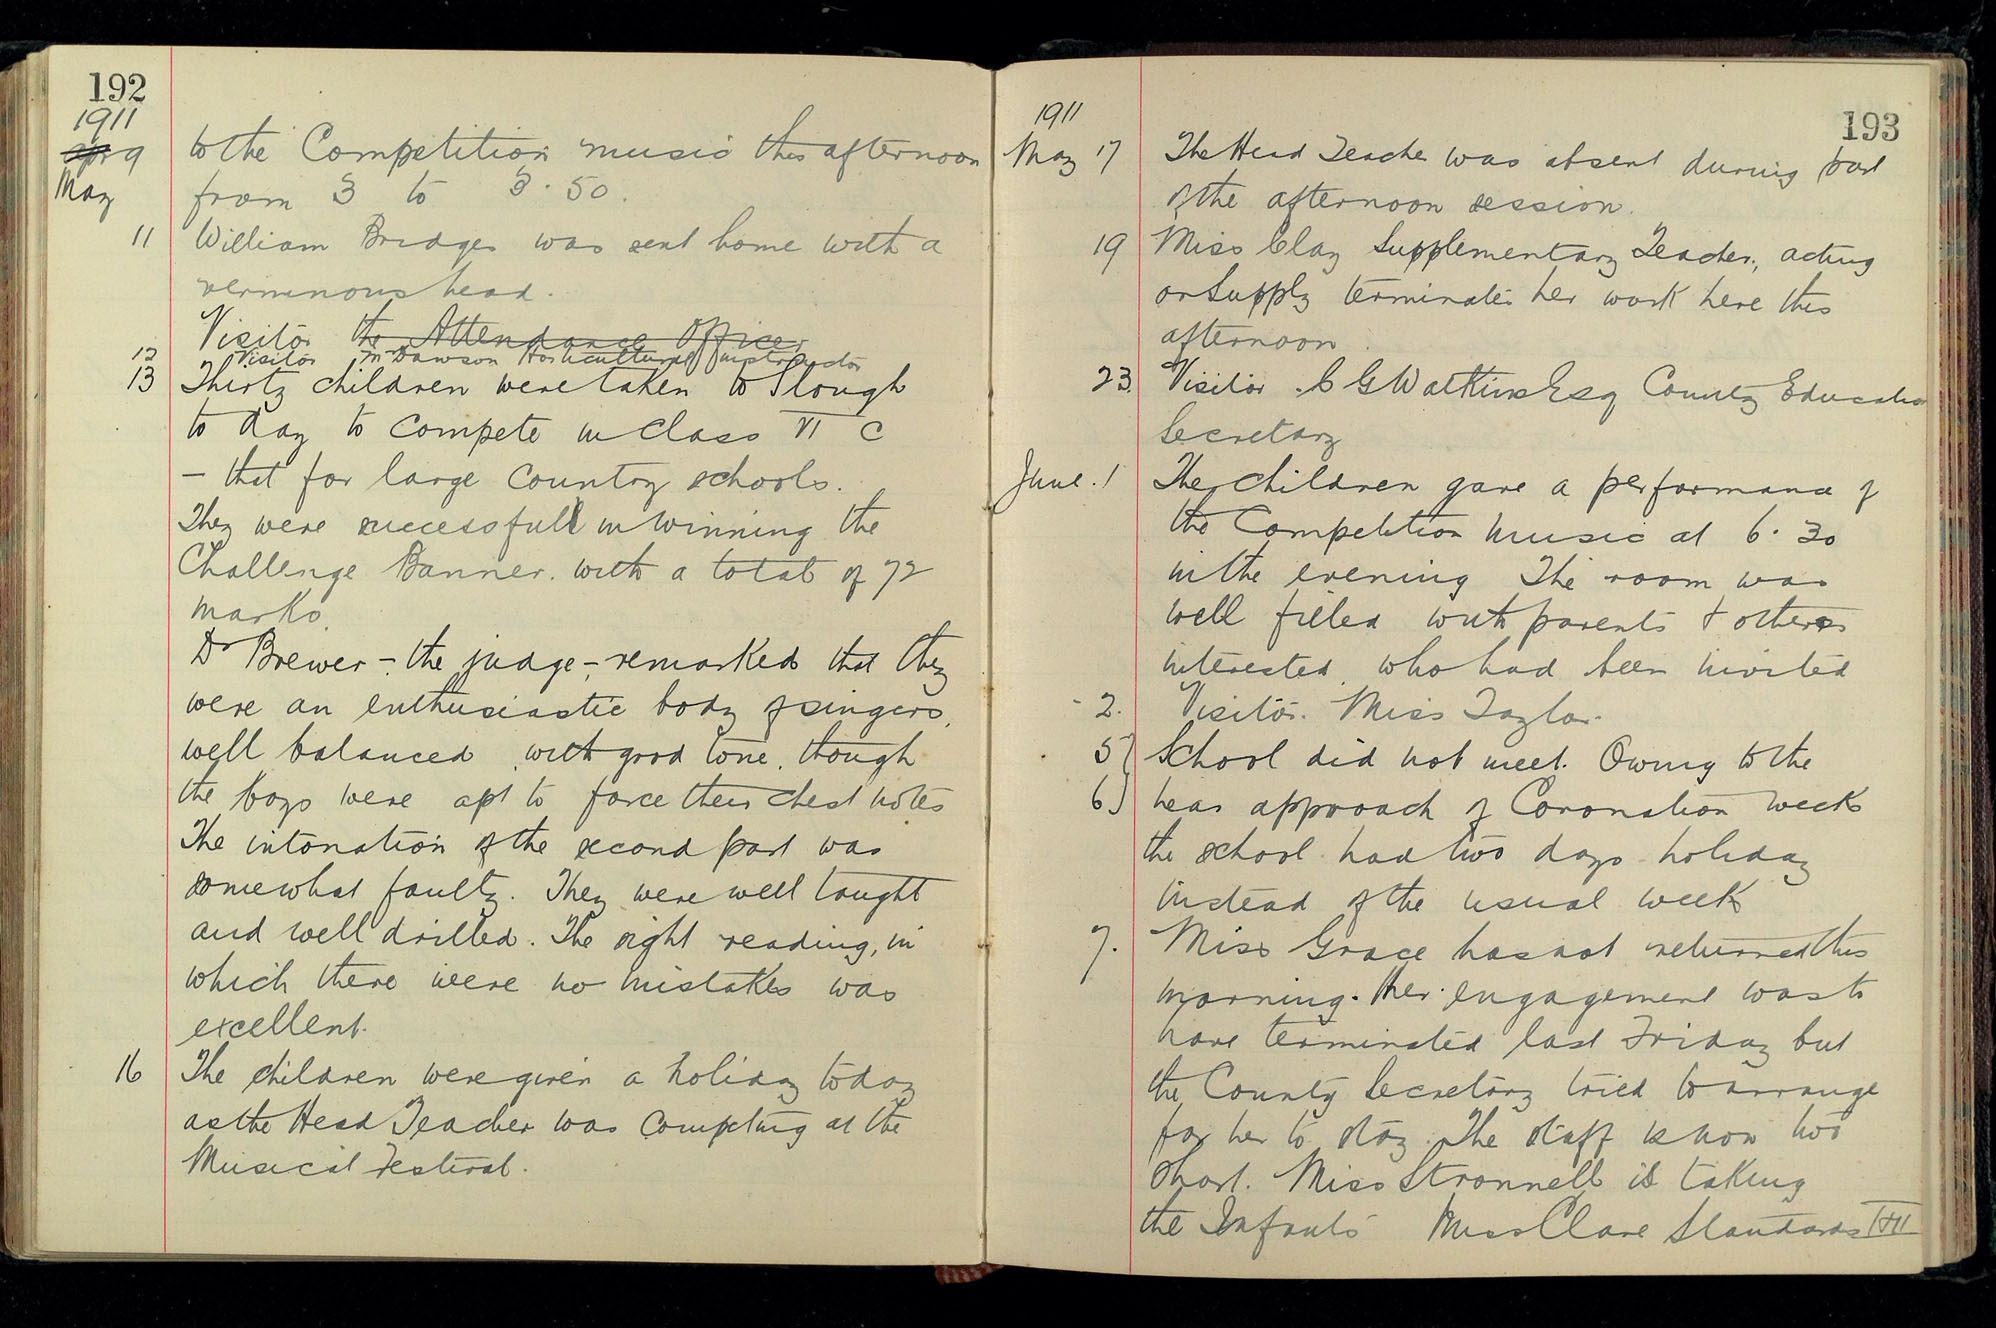 192
1911
Apr 9 to the Competition music this afternoon
May from 3 to 3.50.
11 William Bridges was sent home with a
verminous head.
Visitor the Attendance Officer
12 Visitor Mr Dawson Horticultural Instructor
13 Thirty children were taken to Slough
to day to compete in Class VI C
- that for large Country schools.
They were successfull in winning the
Challenge Banner. with a total of 72
marks.
Dr Brewer - the judge, - remarked that they
were an enthusiastic body of singers,
well balanced, with good tone, though
the boys were apt to force their chest notes
The intonation of the second part was
somewhat faulty. They were well taught
and well drilled. The sight reading, in
which there were no mistakes was
excellent.
16 The children were given a holiday today
as the Head Teacher was competing at the
Musical Festival.
1911 193
May 17 The Head Teacher was absent during part
of the afternoon session.
19 Miss Clay Supplementary Teacher, acting
on Supply terminates her work here this
afternoon.
23. Visitor C G Watkins Esq County Education
Secretary
June. 1 The children gave a performance of
the Competition Music at 6.30
in the evening The room was
well filled with parents & others
interested, who had been invited
2. Visitor. Miss Taylor.
5} School did not meet. Owing to the
6} near approach of Coronation week
the school had two days holiday
instead of the usual week
7. Miss Grace has not returned this
morning. Her engagement was to
have terminated last Friday but
the County Secretary tried to arrange
for her to stay. The staff is now two
short. Miss Stronnell is taking
the Infants Miss Clare Standards I & II